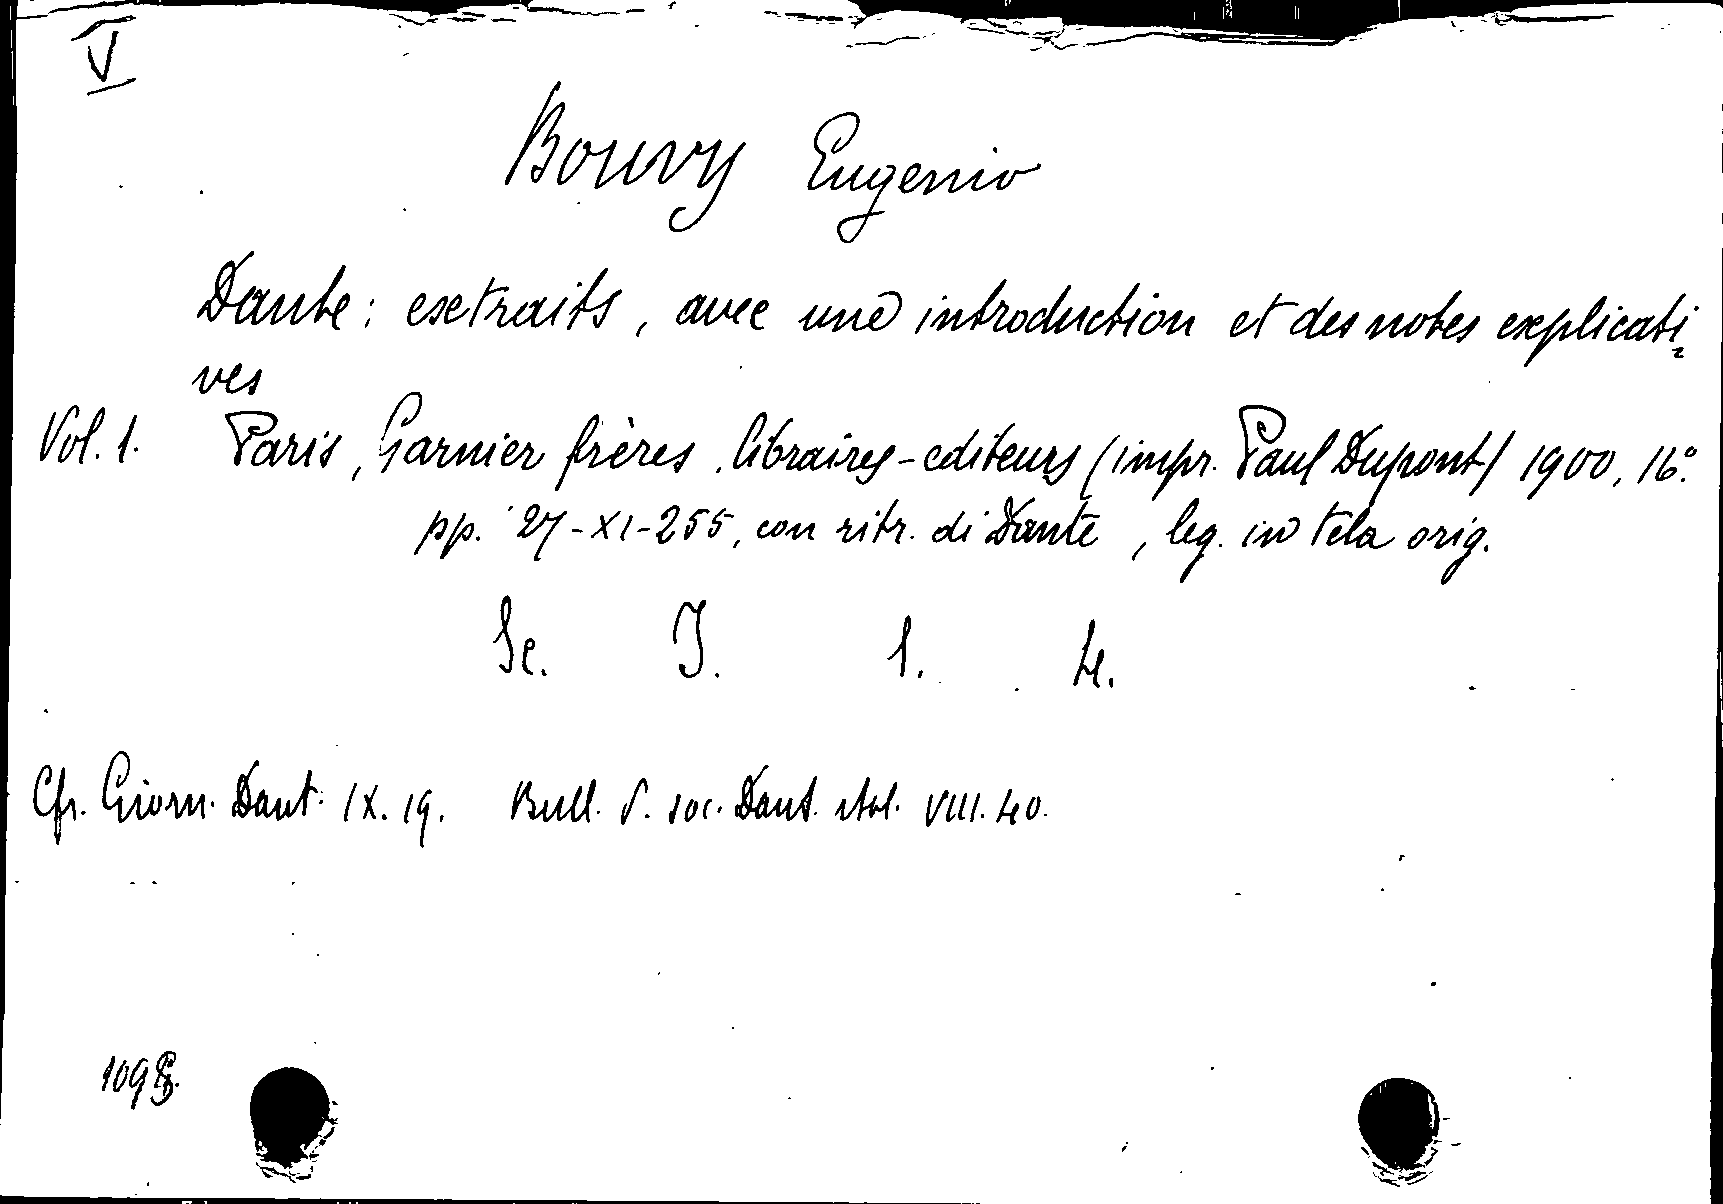 V
Bouvy Eugenio
Dante: extraits, avec une introduction et des notes explicati-
ves
Vol. 1. Paris, Garnier frères, libraires-editeurs (impr. Paul Dupont) 1900, 16°.
pp. 27-XI-255, con ritr. di Dante, leg. in tela orig.
Sc. I. 1. 4.
Cfr. Giorn. Dant. IX. 19. Bull. d. soc. Dant. ital. VIII. 40.